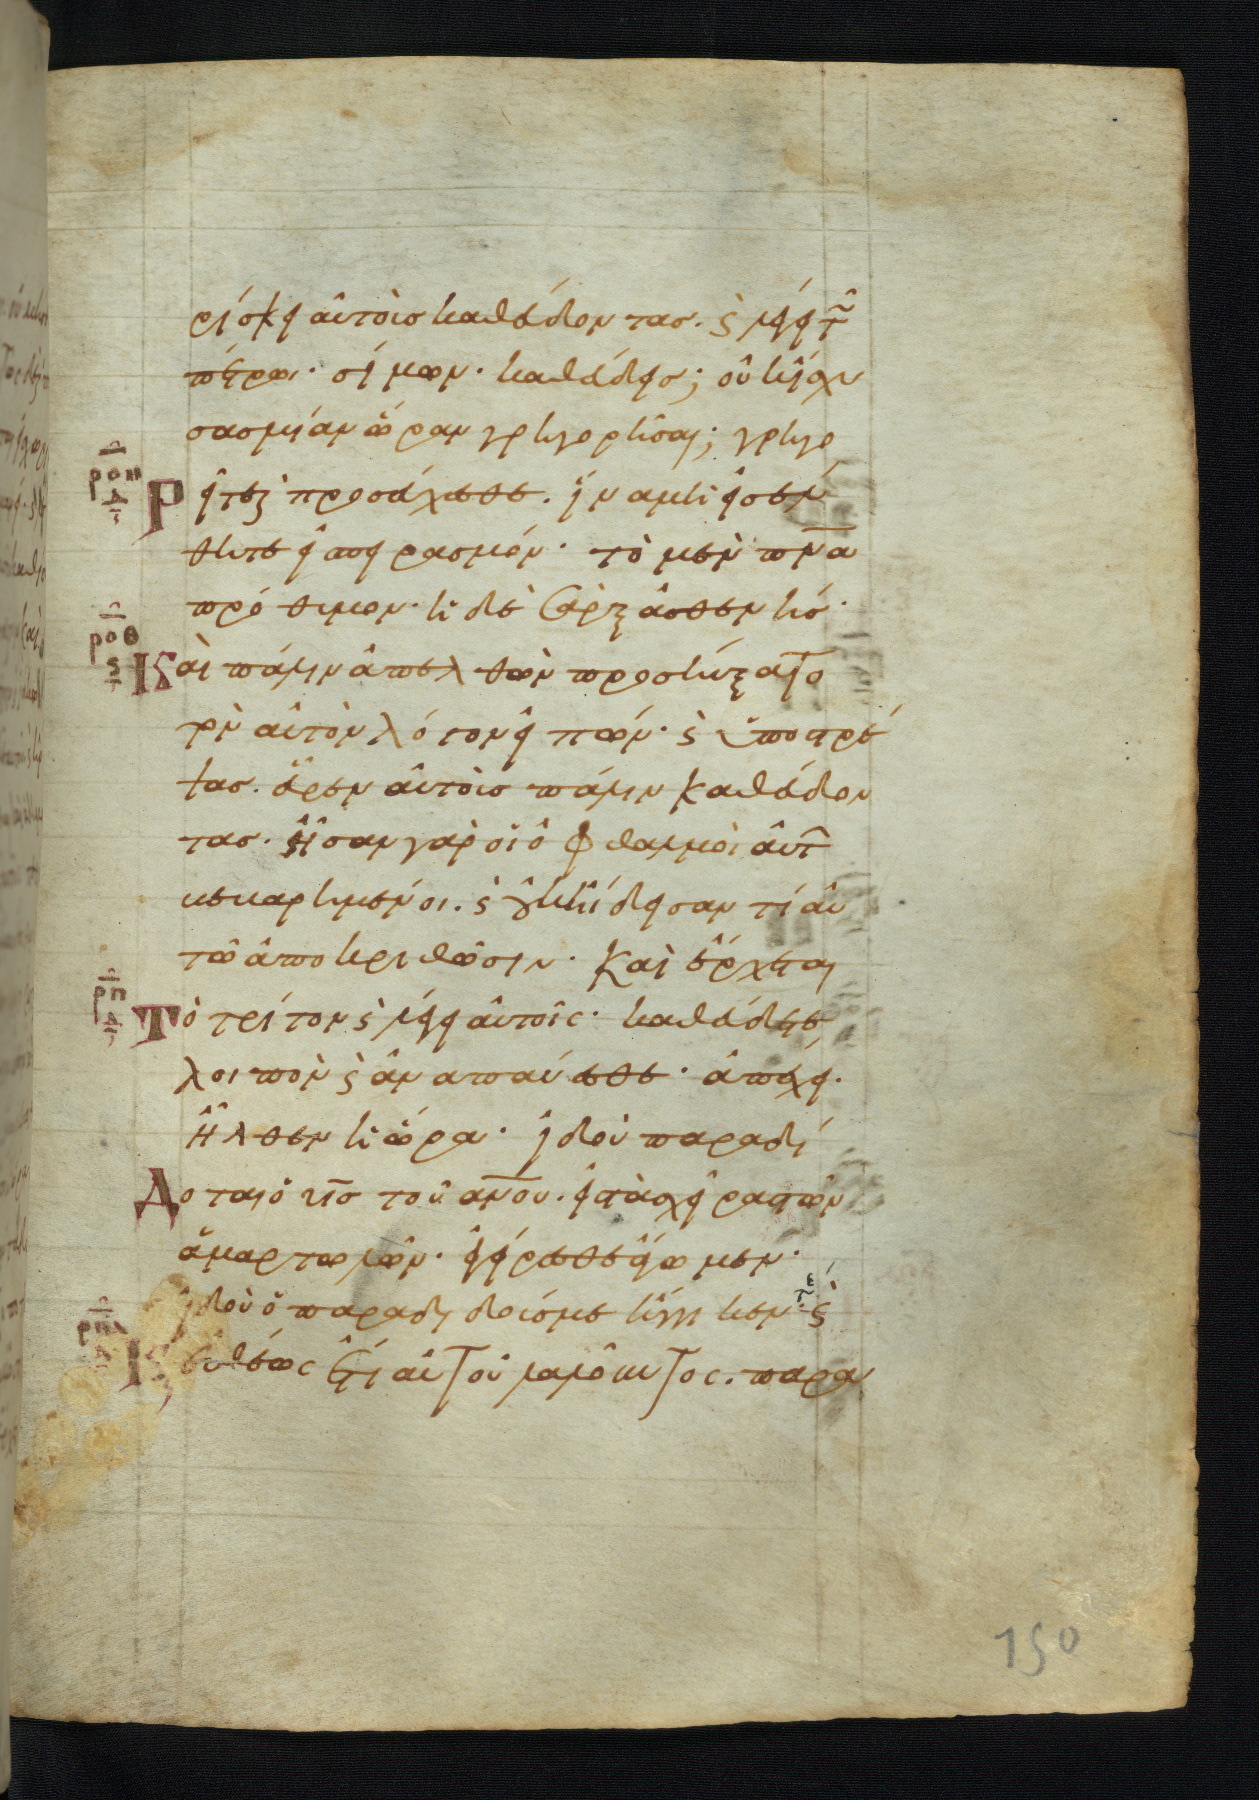 ρίσκει αὐτοὺσ καθεύδοντασ. ϛ λέγει τῶ
πέτρω· σίμων· καθεύδεισ; οὐκ ἴσχυ
σασ μίαν ὥραν γρηγορῆσαι; γρηγο
ροη δ
Ρεῖτε ϛ προσεύχεσθε. ἵνα μὴ εἰσέλ
θητε εἰσ πειρασμόν· τὸ μὲν πν̅α
πρόθυμον· ἡ δὲ σὰρξ ἀσθενήσ·
ροθ ϛ
Καὶ πάλιν ἀπελθὼν προσηύξατο
τὸν αὐτὸν λόγον εἰπών· ϛ ὑποστρέ
ψασ. εὗρεν αὐτοὺσ πάλιν καθεύδον
τασ. ἦσαν γὰρ οἱ ὀφθαλμοὶ αὐτῶν
βεβαρημένοι. ϛ οὐκ ἤδεισαν τί αὐ
τῶ ἀποκριθῶσιν. Καὶ ἔρχεται
ρπ δ
Τὸ τρίτον ϛ λέγει αὐτοῖς· καθεύδετε
λοιπὸν ϛ ἀναπαύεσθε· ἀπέχει.
Ἦλθεν ἡ ὥρα· ἰδοὺ παραδί
Δοται ὁ υἱ̅σ τοῦ αν̅ου· εἰσ τὰσ χεῖρασ τῶν
ἁμαρτωλῶν· ἐγείρεσθε ἄγωμεν·
ἰδοὺ ὁ παραδιδούσ με ἤγγικεν· ϛ
ρπα
Κ εὐθέως ἔτι αὐτοῦ λαλοῦντος. παρα
150